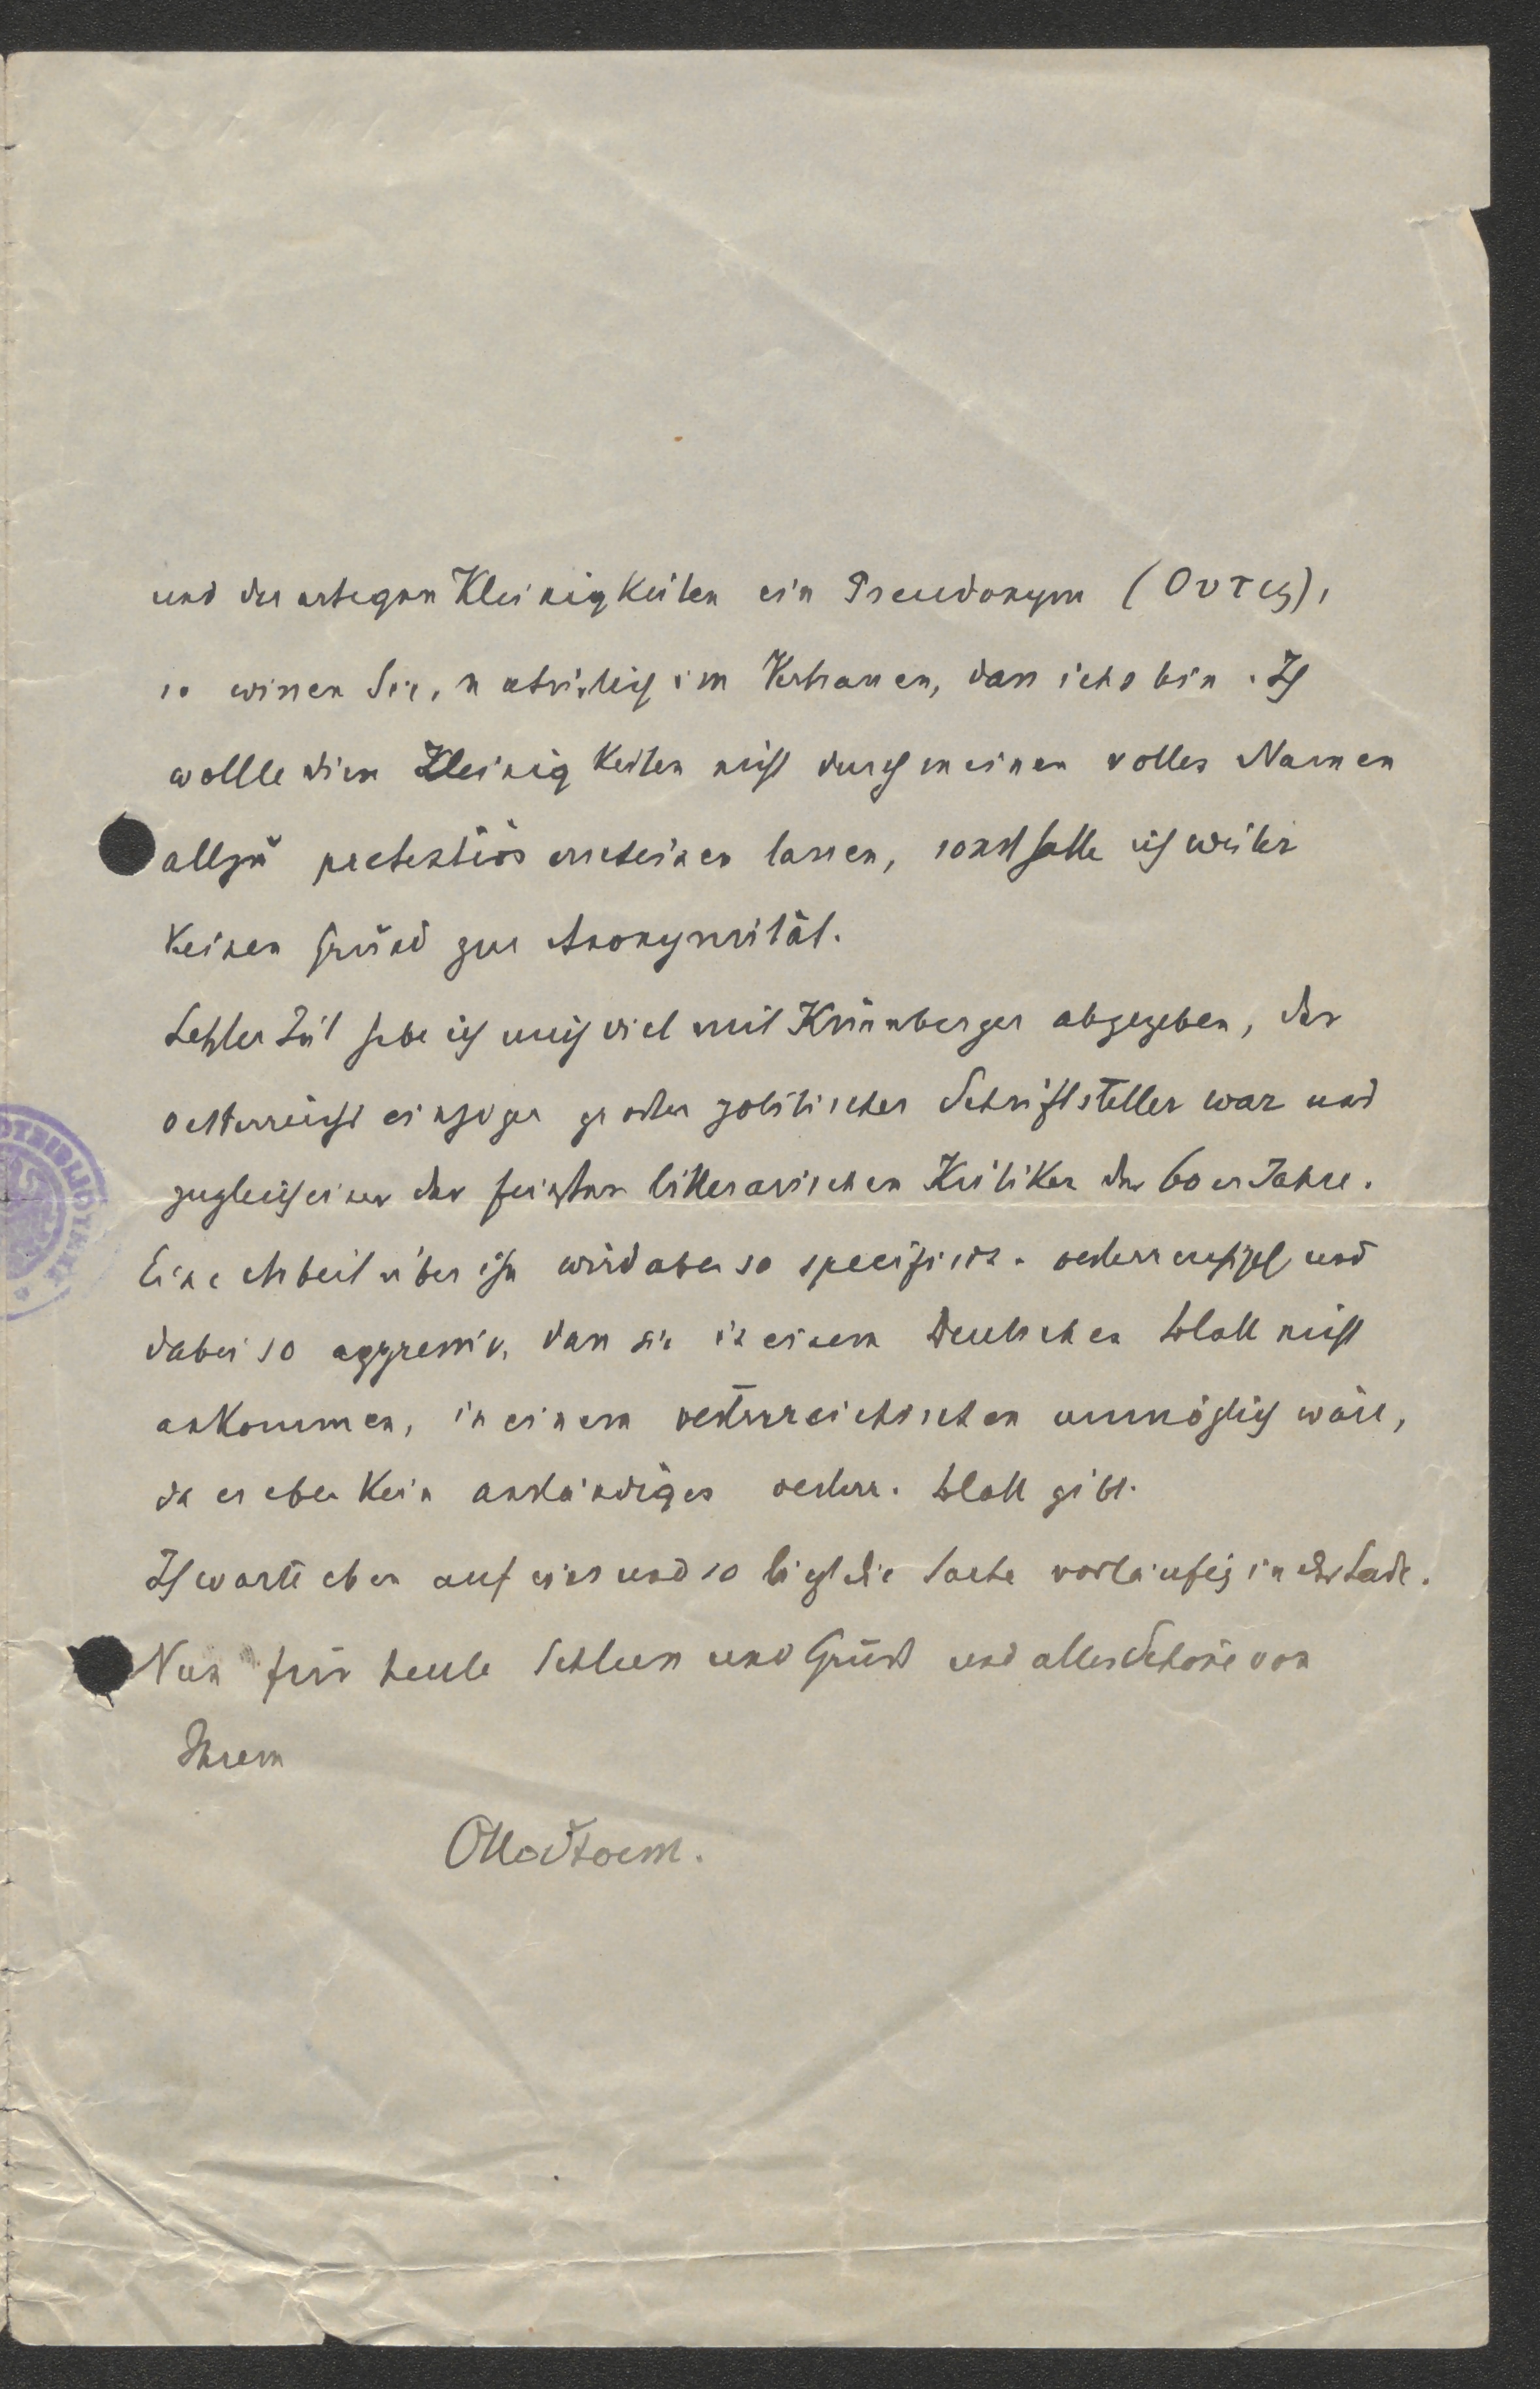 und derartigen Kleinigkeiten ein Pseudonym (Οὖτις),
so wissen Sie, natürlich im Vertrauen, dass ichs bin. Ich
wollte diese Kleinigkeiten nicht durch meinen vollen Namen
allzu pretentiös erscheinen lassen, sonst hatte ich weiter
keinen Grund zur Anonymität.
Letzter Zeit habe ich mich viel mit Kürnberger abgegeben, der
Oesterreichs einziger grosser politischer Schriftsteller war und
zugleich einer der feinsten litterarischen Kritiker der 60er Jahre.
Eine Arbeit über ihn wird aber so specifisch oesterreichisch und
dabei so aggressiv, dass sie in einem Deutschen Blatt nicht
ankommen, in einem oesterreichischen unmöglich wäre,
da es eben kein anständiges oesterr. Blatt gibt.
Ich warte eben auf eines und so liegt die Sache vorläufig in der Lade.
Nun für heute Schluss und Gruss und alles Schöne von
Ihrem
Otto Stoessl.